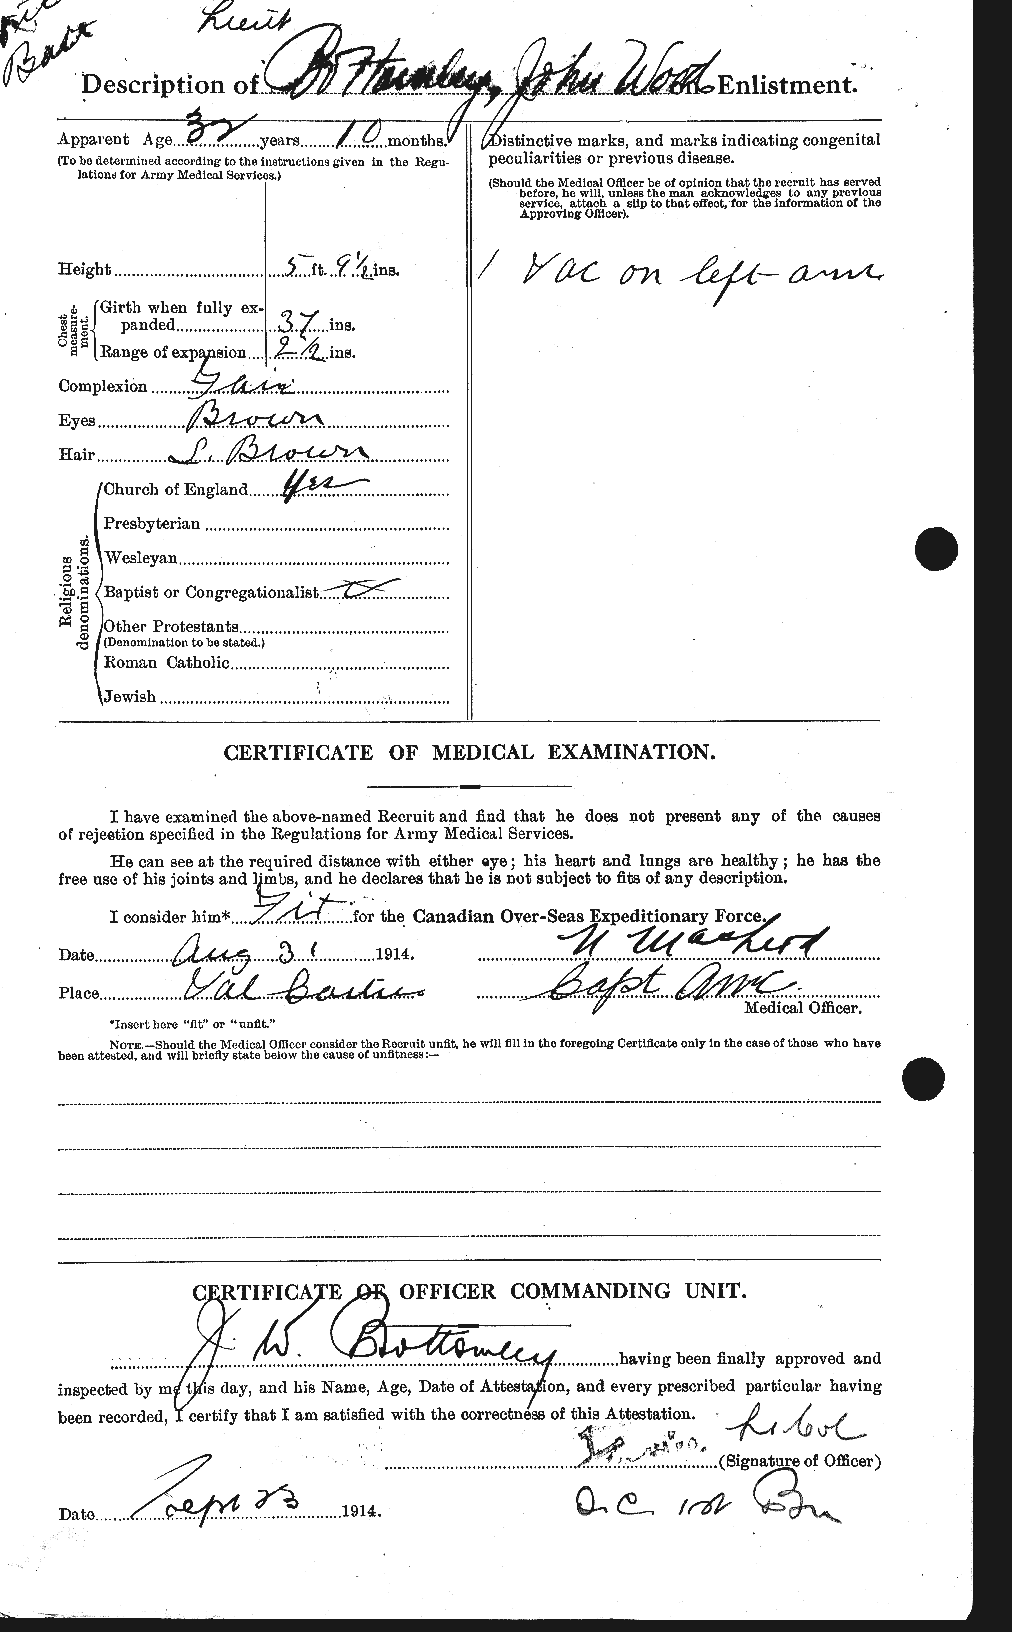 Lieut
Batt
Description of Bottomley, John Wood on Enlistment.
Apparent Age 32 years 10 months.
(To be determined according to the instructions given in the Regu-
lations for Army Medical Services.)
Height 5 ft. 9½ ins.
Chest
measure-
ment.
Girth when fully ex-
panded 37 ins.
Range of expansion 2½ ins.
Complexion Fair
Eyes Brown
Hair L. Brown
Religious
denominations.
Church of England Yes
Presbyterian
Wesleyan
Baptist or Congregationalist
Other Protestants
(Denomination to be stated.)
Roman Catholic
Jewish
Distinctive marks, and marks indicating congenital
peculiarities or previous disease.
(Should the Medical Officer be of opinion that the recruit has served
before, he will, unless the man acknowledges to any previous
service, attach a slip to that effect, for the information of the
Approving Officer).
1 Vac on left arm
CERTIFICATE OF MEDICAL EXAMINATION.
I have examined the above-named Recruit and find that he does not present any of the causes
of rejection specified in the Regulations for Army Medical Services.
He can see at the required distance with either eye; his heart and lungs are healthy; he has the
free use of his joints and limbs, and he declares that he is not subject to fits of any description.
I consider him* Fit for the Canadian Over-Seas Expeditionary Force.
Date Aug 31 1914.
Place Val Cartier
Capt AMC
Medical Officer.
*Insert here "fit" or "unfit."
NOTE.—Should the Medical Officer consider the Recruit unfit, he will fill in the foregoing Certificate only in the case of those who have
been attested, and will briefly state below the cause of unfitness:—
CERTIFICATE OF OFFICER COMMANDING UNIT.
J. W. Bottomley having been finally approved and
inspected by me this day, and his Name, Age, Date of Attestation, and every prescribed particular having
been recorded, I certify that I am satisfied with the correctness of this Attestation.
Lt Col
(Signature of Officer)
Date Sept 23 1914.
O.C. 1st Bn